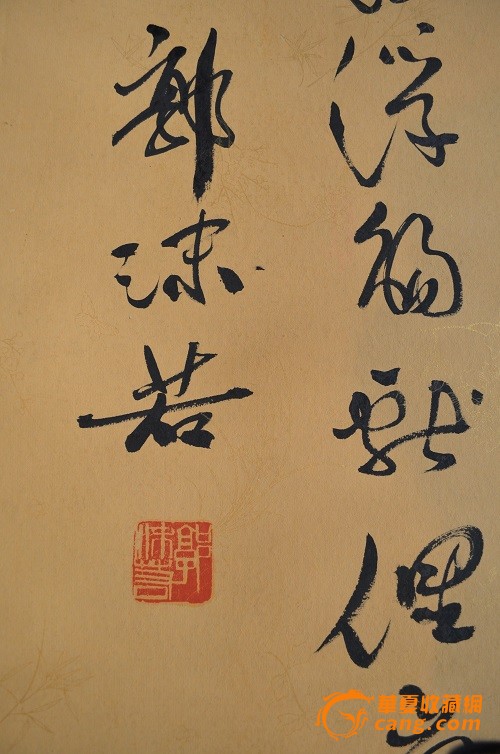 浮觴献俚
郭沫若
郭沫若
華夏收藏網
cang.com